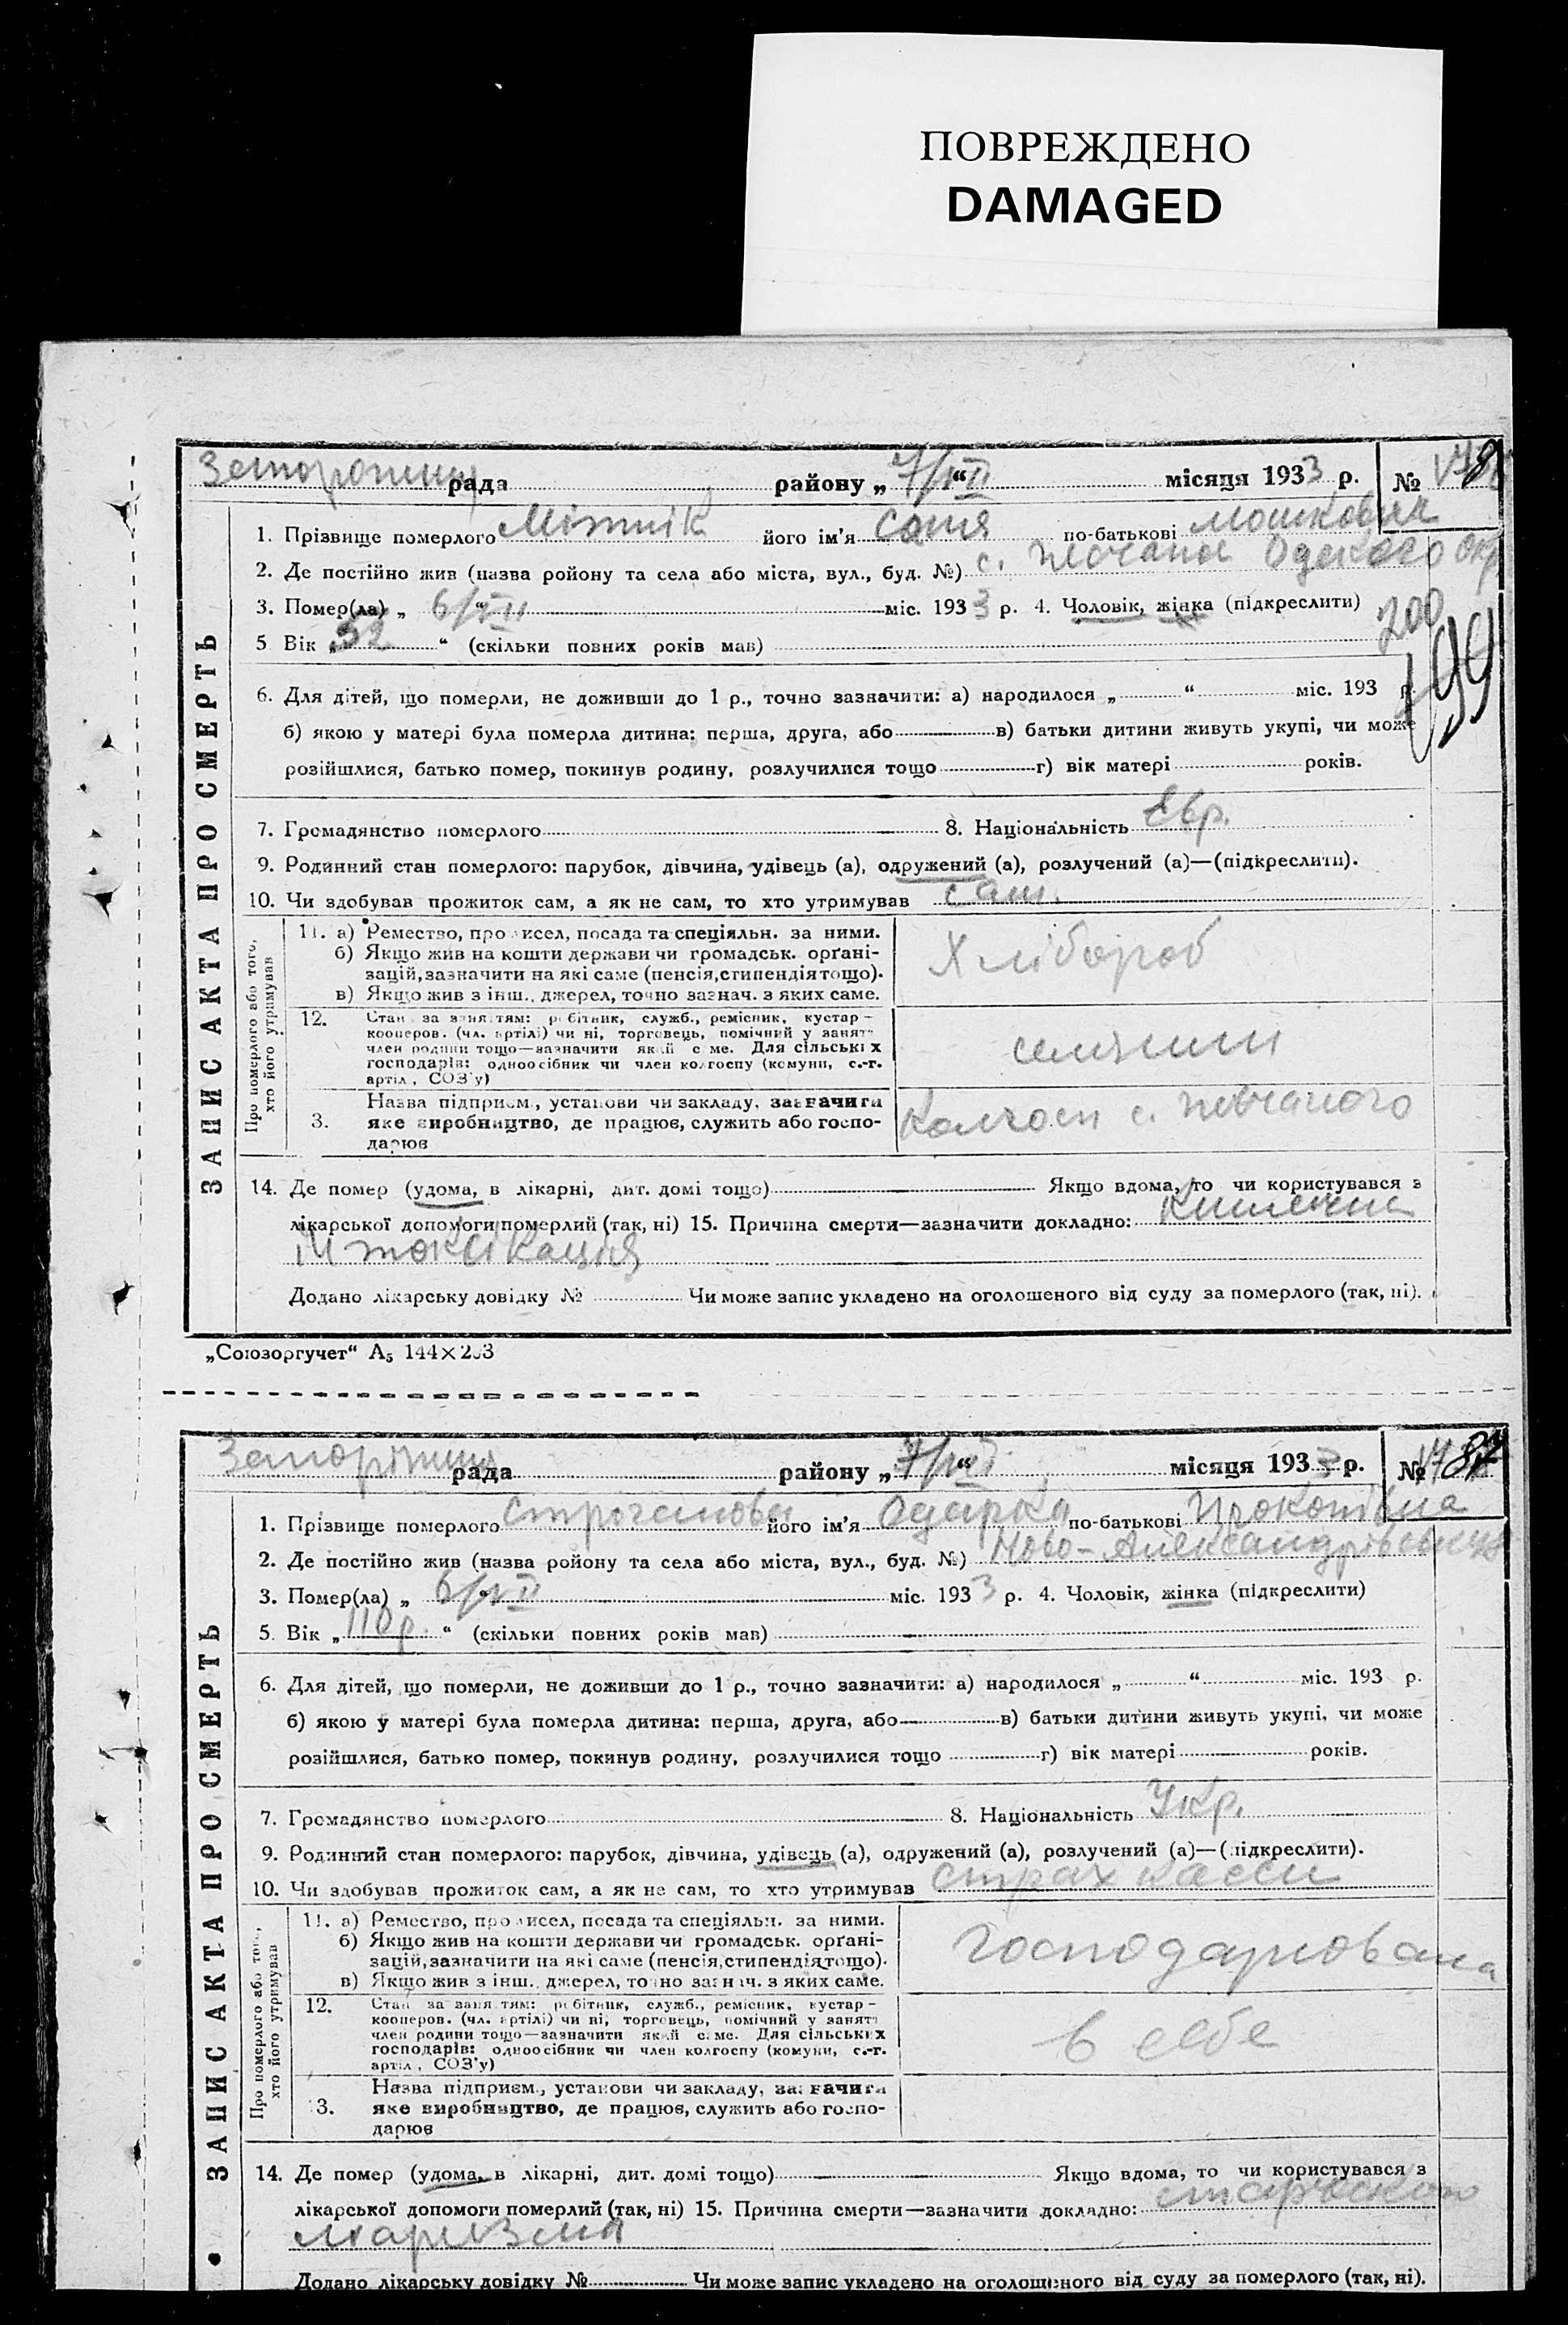 ПОВРЕЖДЕНО
DAMAGED
рада районy „ 7/VII “ місяця 1933 р. №
1. Прізвище померлого Мітнік його ім'я Сотя по-батькові Мошкович
2. Де постійно жив (назва ройону та села або міста, вул., буд. №) с.
3. Помер(ла) „ 6/VII “ міс. 1933 р. 4. Чоловік, жінка (підкреслити)
200
5 Вік „ 52 “ (скільки повних років мав)
199
6. Для дітей, що померли, не доживши до 1 р., точно зазначити: а) народилося „ “ міс. 193 р.
б) якою у матері була померла дитина: перша, друга, або в) батьки дитини живуть укупі, чи може
розійшлися, батько помер, покинув родину, розлучилися тощо г) вік матері років.
7. Громадянство померлого 8. Національність Євр.
9. Родинний стан померлого: парубок, дівчина, удівець (а), одружений (а), розлучений (а)—(підкреслити).
10. Чи здобував прожиток сам, а як не сам, то хто утримував сам.
ЗАПИС АКТА ПРО СМЕРТЬ
Про померлого або того,
хто його утримував
11. а) Ремество, промисел, посада та спеціяльн. за ними.
б) Якщо жив на кошти держави чи громадськ. орґані-
зацій, зазначити на які саме (пенсія, стипендія тощо).
в) Якщо жив з інш., джерел, точно зазнач. з яких саме.
Хлібороб
12. Стан за заняттям: робітник, служб., ремісник, кустар-
кооперов. (чл. артілі) чи ні, торговець, помічний у занятт
член родини тощо—зазначити який саме. Для сільських
господарів: одноосібник чи член колгоспу (комуни, с.-г.
артіл., СОЗ'у)
селянин
3. Назва підприєм., установи чи закладу, зазначити
яке виробництво, де працює, служить або госпо-
дарює
Колгосп с.
14. Де помер (удома, в лікарні, дит. домі тощо) Якщо вдома, то чи користувався з
лікарської допомоги померлий (так, ні) 15. Причина смерти—зазначити докладно: Кишечна
інтоксікація
Додано лікарську довідку № Чи може запис укладено на оголошеного від суду за померлого (так, ні).
„Союзоргучет“ А5 144×203
рада району „ 7/VII “ місяця 1933 р. №
1. Прізвище померлого Строганова його ім'я Одарка по-батькові Прокопівна
2. Де постійно жив (назва ройону та села або міста, вул., буд. №) Ново-
3. Помер(ла) „ 6/VII “ міс. 1933 р. 4. Чоловік, жінка (підкреслити)
5. Вік „ 110 р. “ (скільки повних років мав)
6. Для дітей, що померли, не доживши до 1 р., точно зазначити: а) народилося „ “ міс. 193 р.
б) якою у матері була померла дитина: перша, друга, або в) батьки дитини живуть укупі, чи може
розійшлися, батько помер, покинув родину, розлучилися тощо г) вік матері років.
7. Громадянство померлого 8. Національність Укр.
9. Родинний стан померлого: парубок, дівчина, удівець (а), одружений (а), розлучений (а)—(підкреслити).
10. Чи здобував прожиток сам, а як не сам, то хто утримував страх касси
ЗАПИС АКТА ПРО СМЕРТЬ
Про померлого або того,
хто його утримував
11. а) Ремество, промисел, посада та спеціяльн. за ними.
б) Якщо жив на кошти держави чи громадськ. орґані-
зацій, зазначити на які саме (пенсія, стипендія тощо).
в) Якщо жив з інш., джерел, точно зазнач. з яких саме.
господарювана
12. Стан за заняттям: робітник, служб., ремісник, кустар-
кооперов. (чл. артілі) чи ні, торговець, помічний у занятт
член родини тощо—зазначити який саме. Для сільських
господарів: одноосібник чи член колгоспу (комуни, с.-г.
артіл., СОЗ'у)
в себе
3. Назва підприєм., установи чи закладу, зазначити
яке виробництво, де працює, служить або госпо-
дарює
14. Де помер (удома, в лікарні, дит. домі тощо) Якщо вдома, то чи користувався з
лікарської допомоги померлий (так, ні) 15. Причина смерти—зазначити докладно:
маризма
Додано лікарську довідку № Чи може запис укладено на оголошеного від суду за померлого (так, ні).